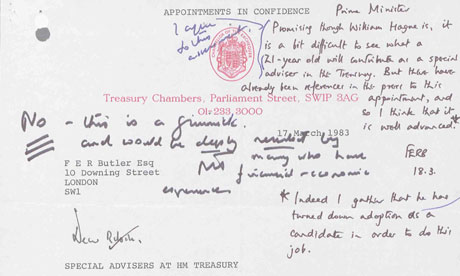 APPOINTMENTS IN CONFIDENCE
Prime Minister
I agree
to this
Promising though William Hague is, it
is a bit difficult to see what a
21-year old will contribute as a special
adviser in the Treasury. But there have
already been references in the press to this
appointment, and
so I think that it
is well advanced.*
FERB
18.3.
* Indeed I gather that he has
turned down adoption as a
candidate in order to do this
job.
Treasury Chambers, Parliament Street, SW1P 3AG
01-233 3000
No - this is a gimmick
and would be deeply resented by
many who have
financial-economic
experience
17 March 1983
F E R Butler Esq
10 Downing Street
LONDON
SW1
Dear Robin,
SPECIAL ADVISERS AT HM TREASURY